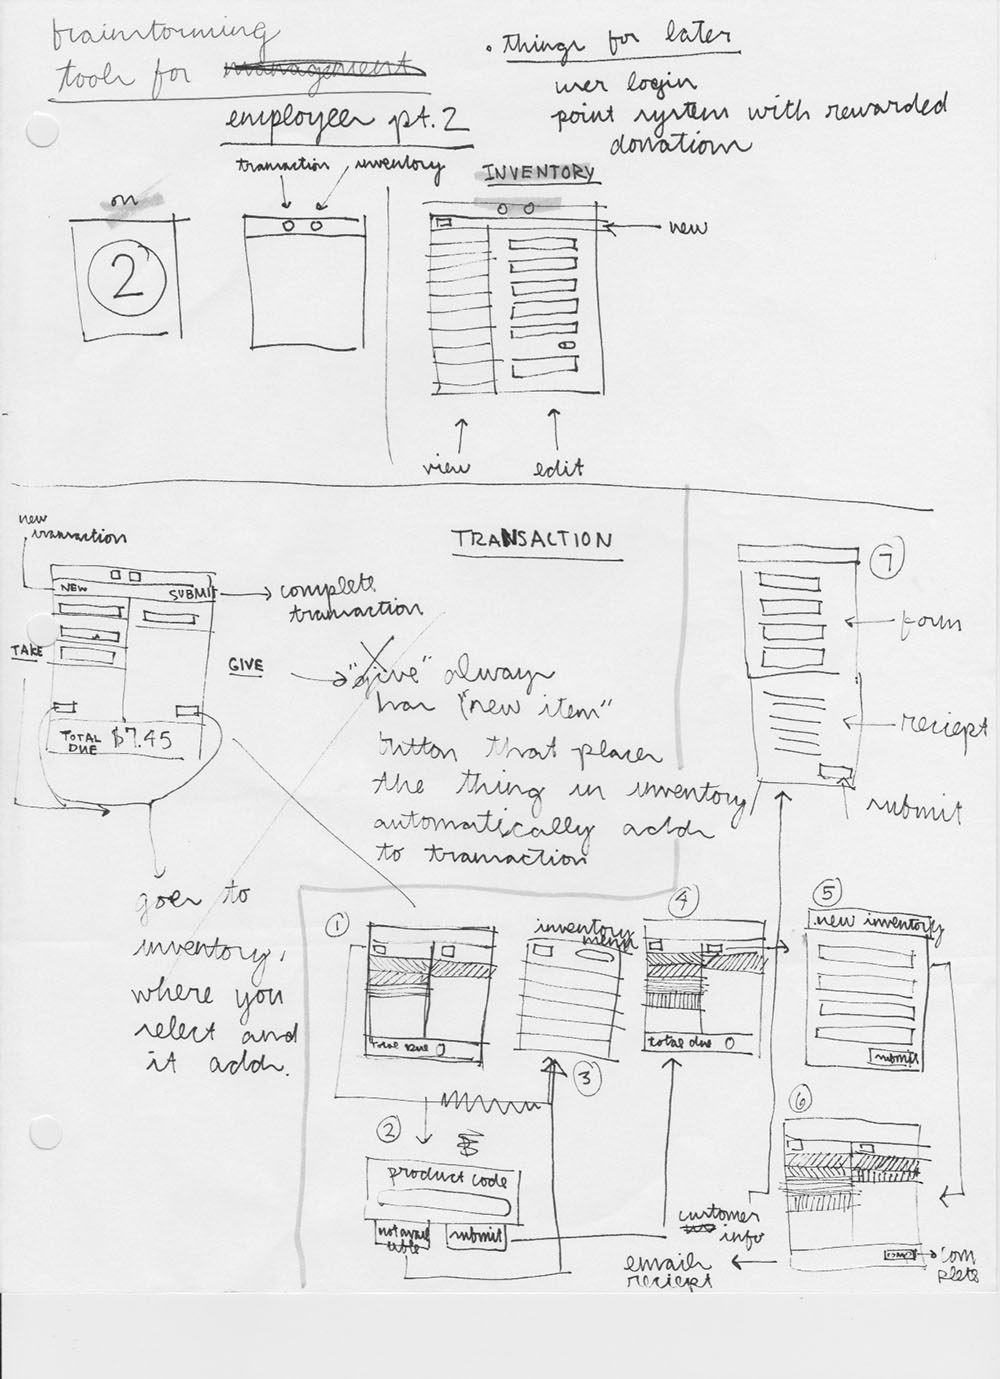 brainstorming
tools for management
employees pt. 2
• things for later
user login
point system with rewarded
donations
transaction
inventory
on
2
INVENTORY
new
view
edit
new
transaction
NEW
SUBMIT
complete
transaction
TAKE
GIVE
TOTAL
DUE
$7.45
TRANSACTION
"give" always
has "new item"
button that places
the thing in inventory
automatically adds
to transaction
goes to
inventory,
where you
select and
it adds.
7
form
reciept
submit
1
total due 0
inventory
menu
3
4
total due 0
5
new inventory
submit
2
product code
not avail
able
submit
customer
info
emails
reciept
6
com
plete